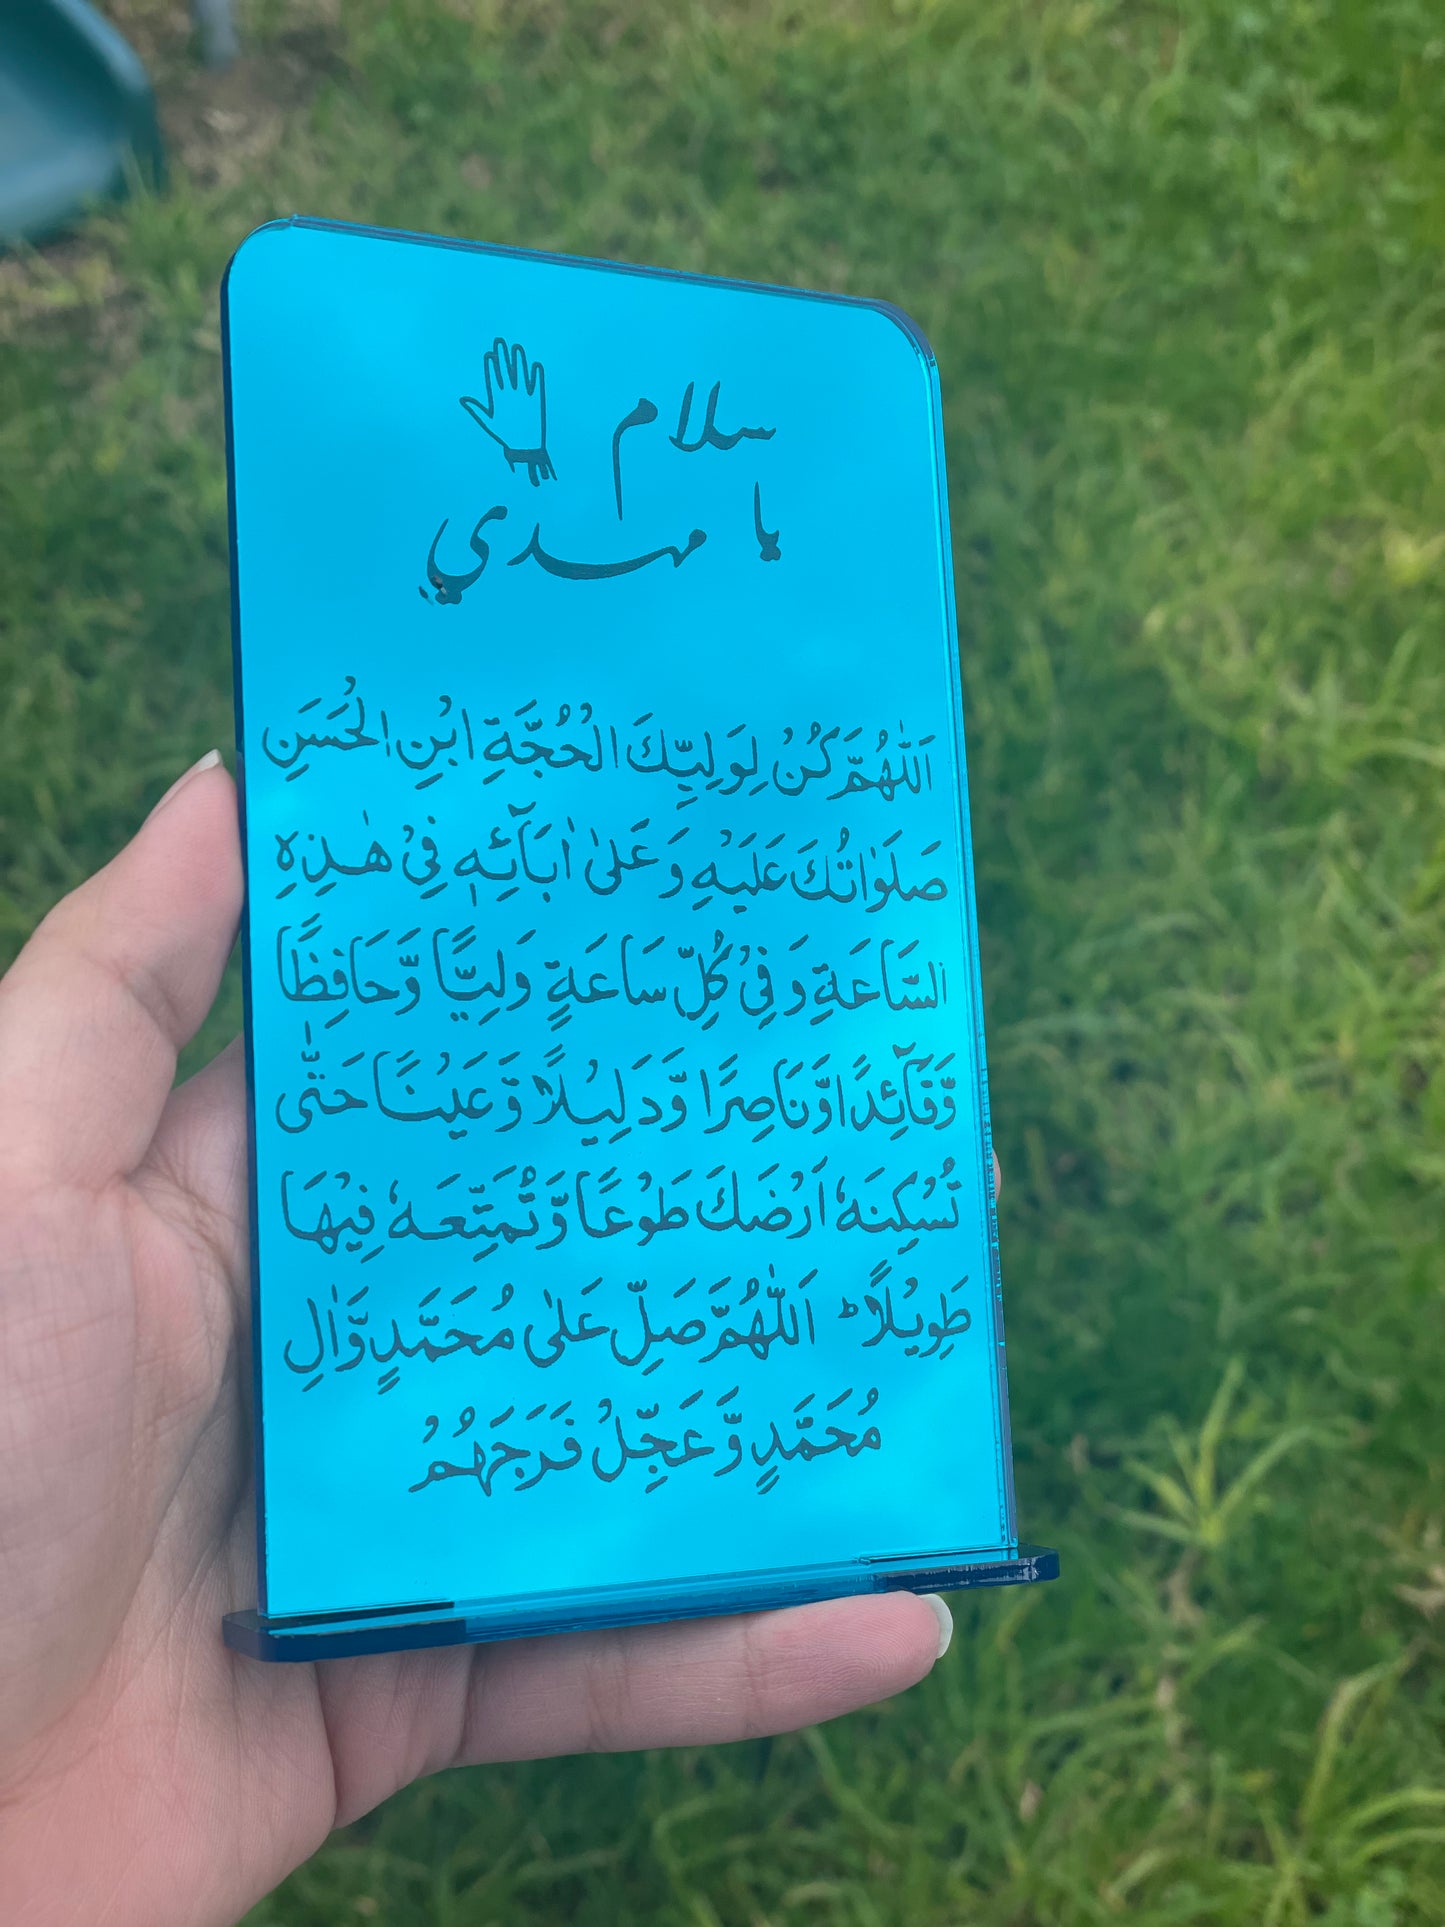 سلام
يا مهدي
اَللّٰهُمَّ كُنْ لِوَلِيِّكَ الْحُجَّةِ ابْنِ الْحَسَنِ
صَلَوٰاتُكَ عَلَيْهِ وَ عَلىٰ اٰبَآئِهٖ فِيْ هٰذِهِ
السَّاعَةِ وَ فِيْ كُلِّ سَاعَةٍ وَلِيًّا وَّحَافِظًا
وَّقَآئِدًا وَّنَاصِرًا وَّدَلِيْلًا وَّعَيْنًا حَتّٰى
تُسْكِنَهٗ اَرْضَكَ طَوْعًا وَّتُمَتِّعَهٗ فِيْهَا
طَوِيْلًا ؕ اَللّٰهُمَّ صَلِّ عَلىٰ مُحَمَّدٍ وَّاٰلِ
مُحَمَّدٍ وَّعَجِّلْ فَرَجَهُمْ